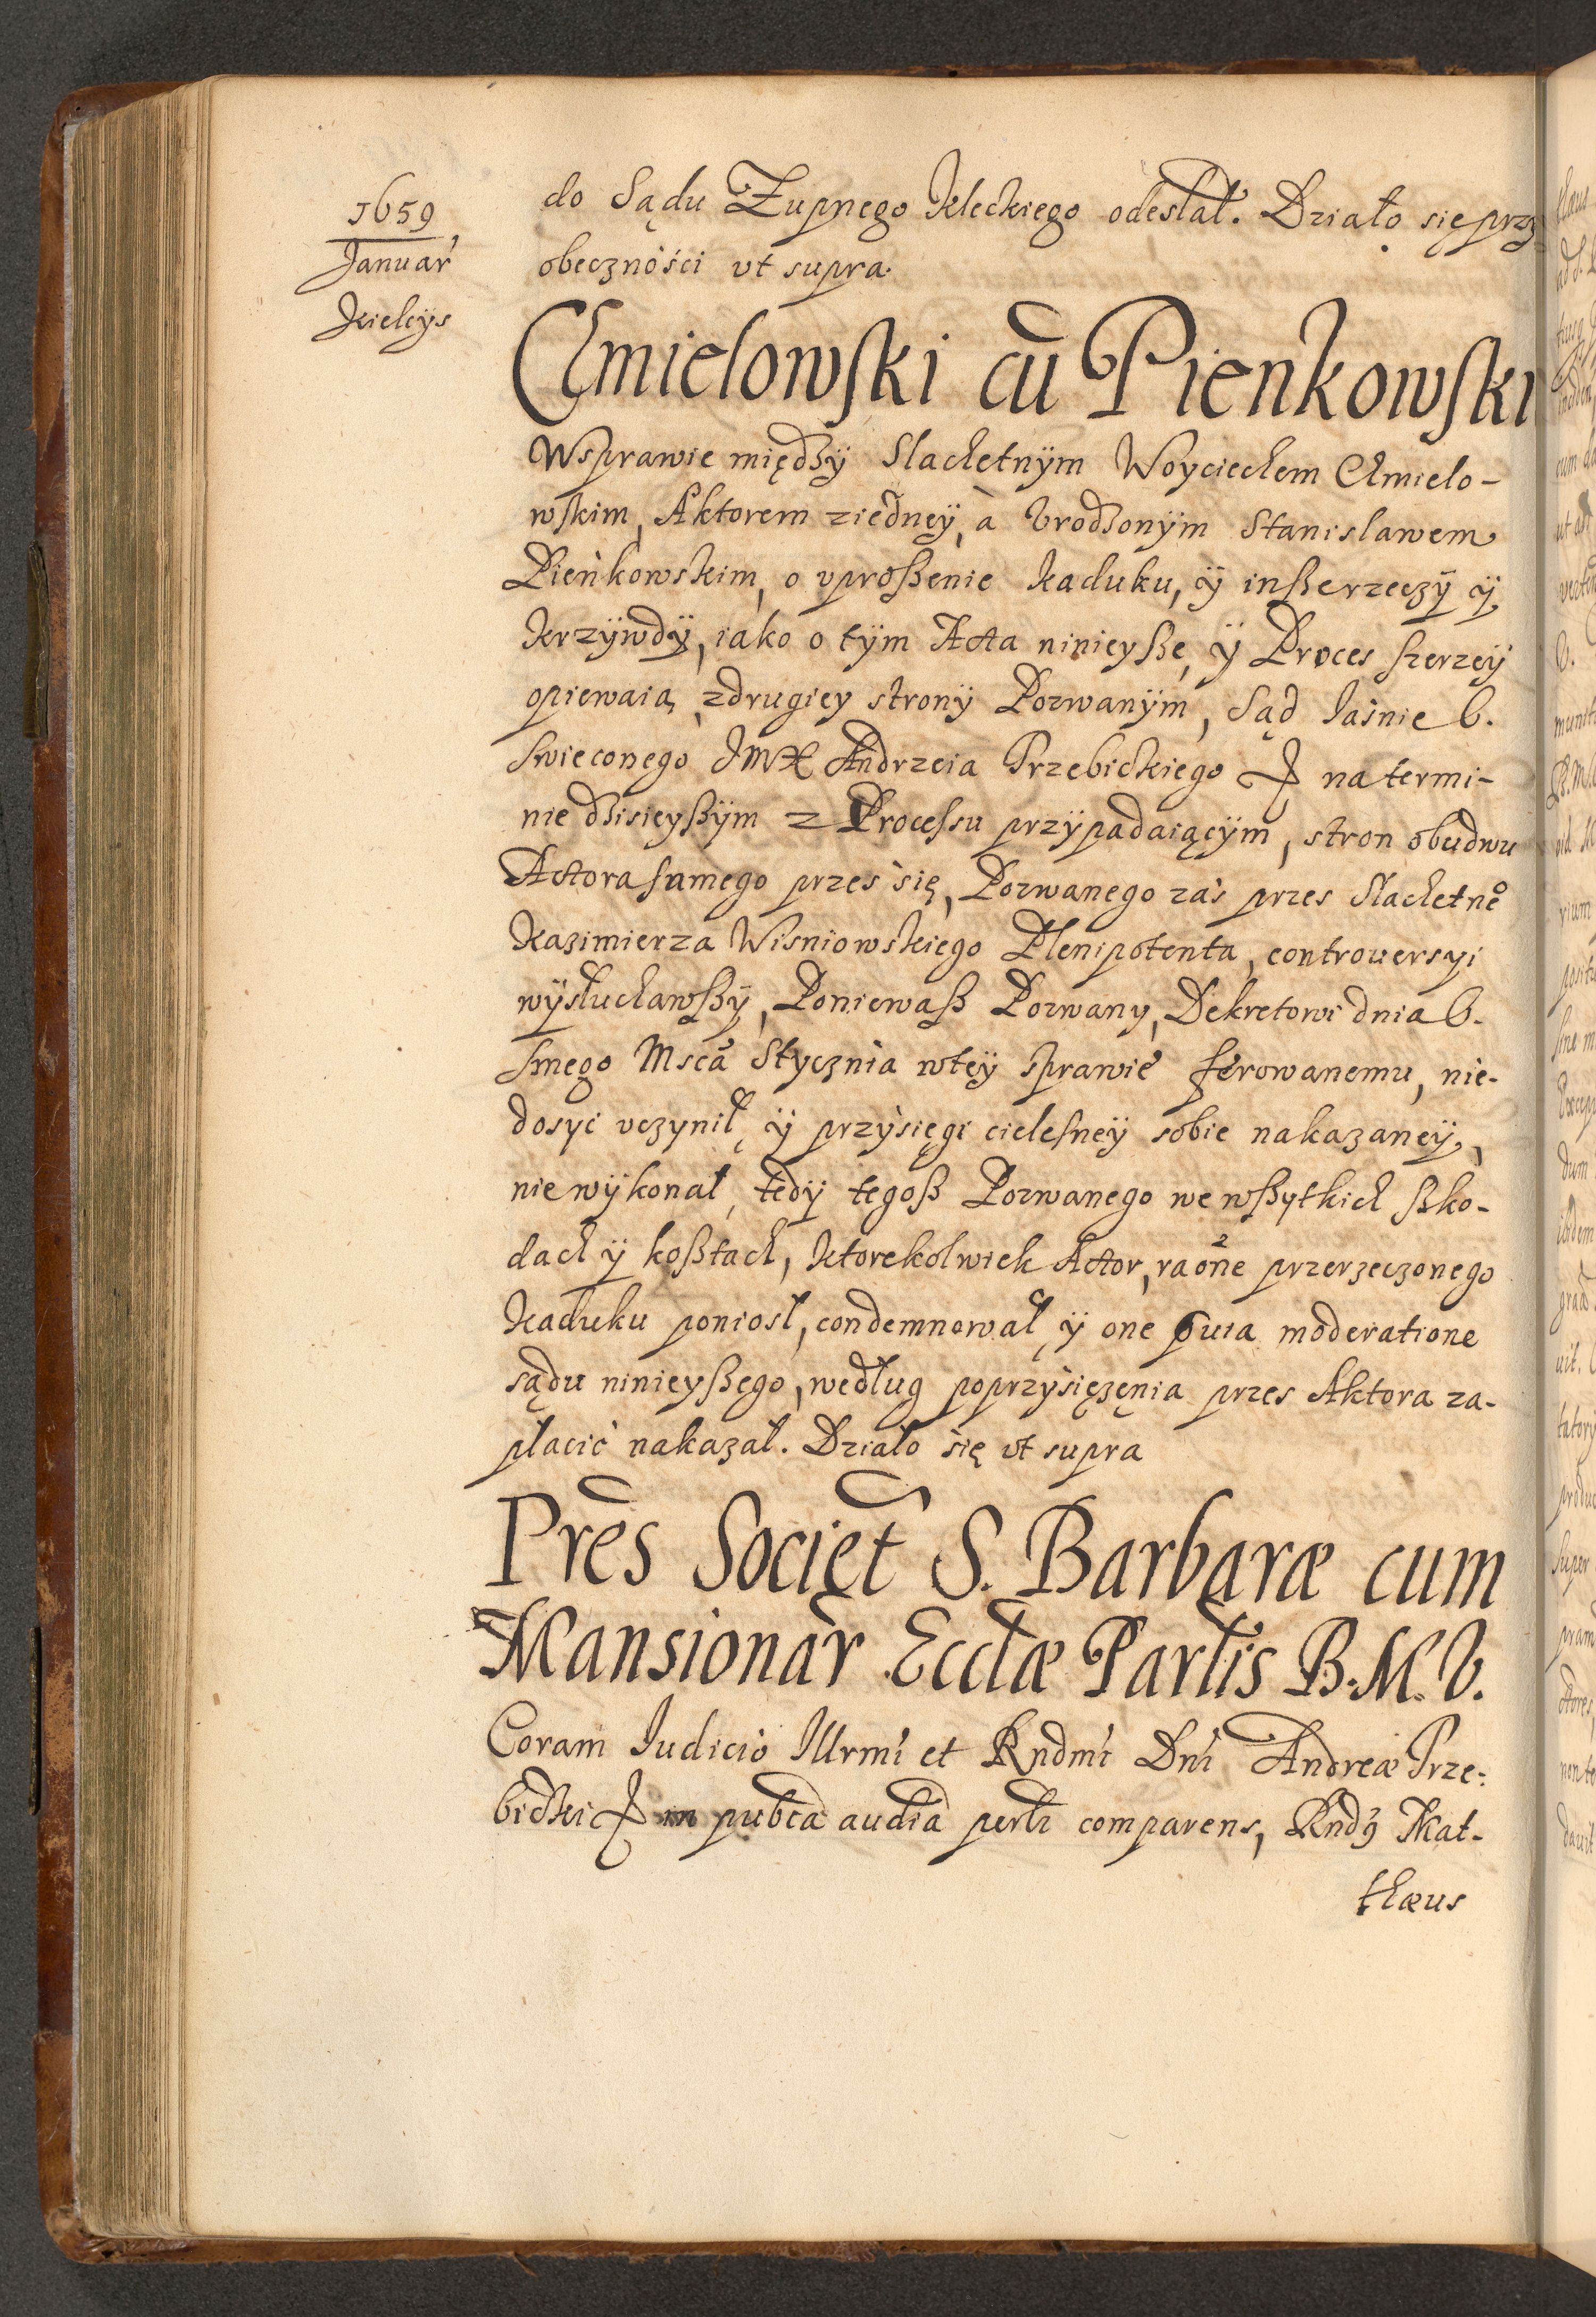 1659
Januar̃
Kielcÿs
do Sądu Zupnego Kleckiego odesłał. Działo się przy
obecznośći vt supra.
Chmielowski cũ Pienkowski
Wsprawie międzÿ Slachetnÿm Woyciechem Chmielo-
wskim, Aktorem ziedneÿ, à Vrodzonÿm Stanislawem
Pieńkowskim, o vproßenie kaduku, ÿ inße rzeczÿ ÿ
krzÿwdÿ, iako o tÿm Acta ninieyße, ÿ Proces szerzeÿ
opiewaią, zdrugiey stronÿ Pozwanÿm, Sąd Iaśnie O.
swieconego JMX Andrzeia Trzebickiego na termi-
nie dzisieyßÿm z Processu przÿpadaiącÿm, stron obudwu
Actora samego przes się, Pozwanego zaś przes Slachetne͛
Kazimierza Wisniowskiego Plenipotenta, controuersyi
wÿsłuchawßÿ, Poniewaß Pozwany, Dekretowi dnia O.
smego Mscã Stycznia wteÿ sprawie ferowanemu, nie-
dosyć vczynił, ÿ przÿsięgi cielesneÿ sobie nakazaneÿ,
nie wÿkonał, tedÿ tegoß Pozwanego we wßytkich ßko-
dach ÿ koßtach, ktorekolwiek Actor, raõne przerzeczonego
kaduku poniosł, condemnował, ÿ one p̃uia moderatione
sądu ninieyßego, według poprzÿsięzęnia przes Aktora za-
płacić nakazał. Działo się vt supra
Prẽs Sociẽt S. Barbaræ cum
Mansionar̃ Ecclæ Parlis B. M. V.
Coram Iudicio Illrmi et Rndmi Dni Andreæ Trze-
bicki in pubca audia perli comparens, Rndꝰ Mat-
thæus